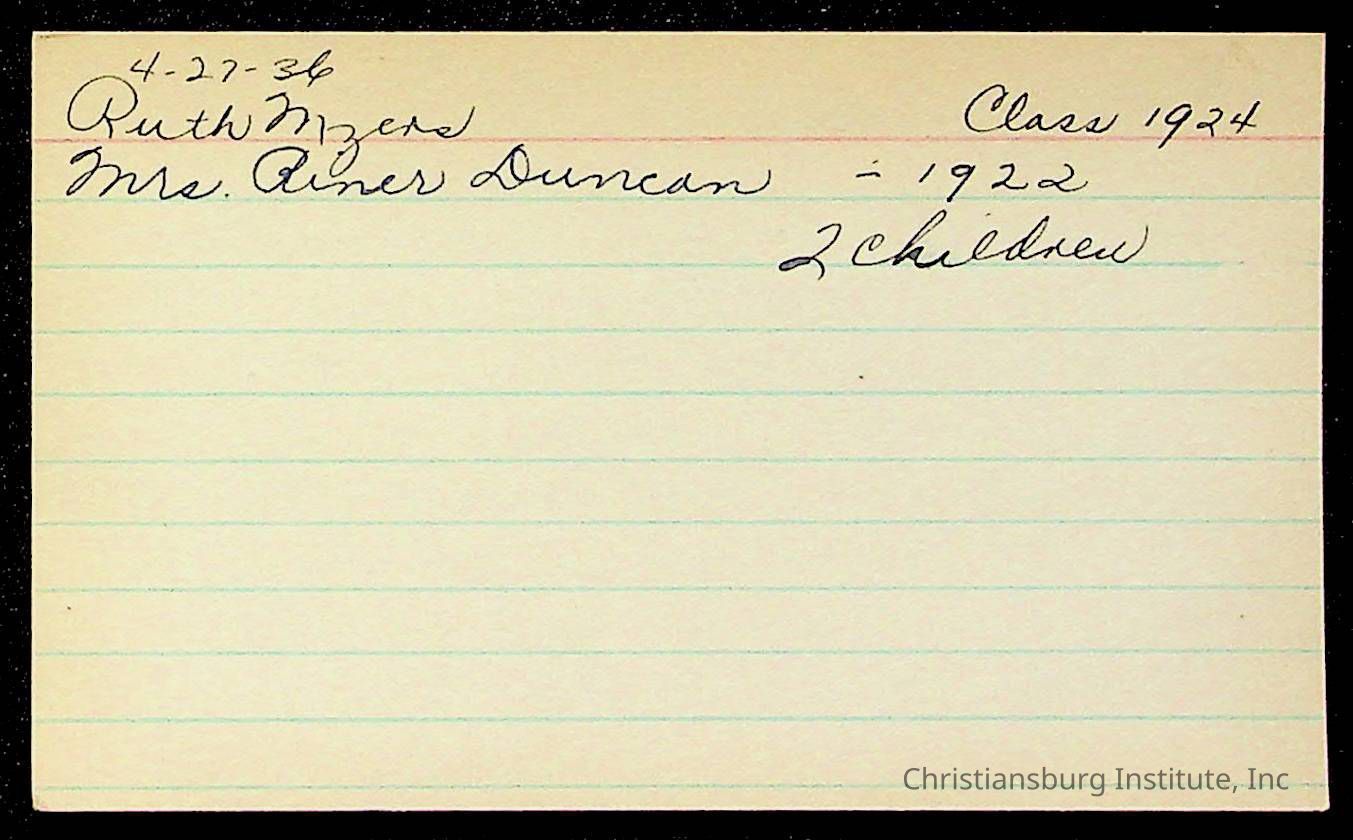 4-27-36
Ruth Myers Class 1924
Mrs. Riner Duncan - 1922
2 children
Christiansburg Institute, Inc